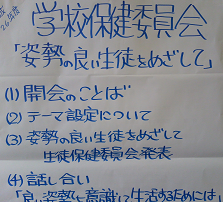 26年度
学校保健委員会
「姿勢の良い生徒をめざして」
(1) 開会のことば
(2) テーマ設定について
(3) 姿勢の良い生徒をめざして
生徒保健委員会発表
(4) 話し合い
「良い姿勢を意識して生活するためには